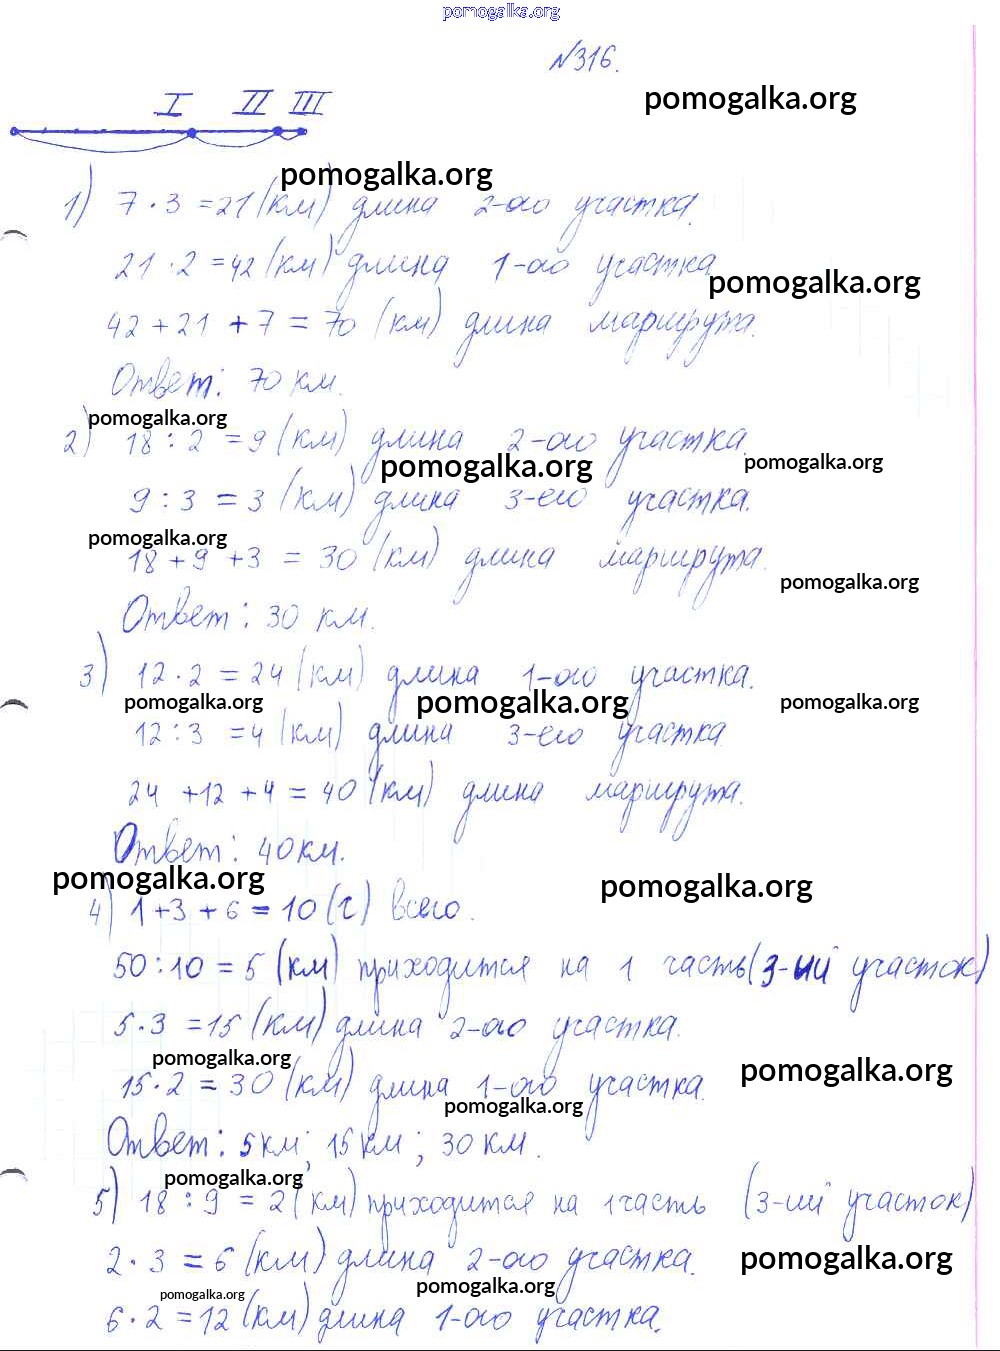 pomogalka.org
№316.
pomogalka.org
I II III
pomogalka.org
1) 7 · 3 = 21 (км) длина 2-ого участка.
21 · 2 = 42 (км) длина 1-ого участка
pomogalka.org
42 + 21 + 7 = 70 (км) длина маршрута.
Ответ: 70 км.
pomogalka.org
2) 18 : 2 = 9 (км) длина 2-ого участка.
pomogalka.org pomogalka.org
9 : 3 = 3 (км) длина 3-его участка.
pomogalka.org
18 + 9 + 3 = 30 (км) длина маршрута.
pomogalka.org
Ответ: 30 км.
3) 12 · 2 = 24 (км) длина 1-ого участка.
pomogalka.org pomogalka.org pomogalka.org
12 : 3 = 4 (км) длина 3-его участка
24 + 12 + 4 = 40 (км) длина маршрута.
Ответ: 40 км.
pomogalka.org pomogalka.org
4) 1 + 3 + 6 = 10 (ч) всего.
50 : 10 = 5 (км) приходится на 1 часть (3-ий участок)
5 · 3 = 15 (км) длина 2-ого участка.
pomogalka.org pomogalka.org
15 · 2 = 30 (км) длина 1-ого участка.
pomogalka.org
Ответ: 5 км; 15 км; 30 км.
pomogalka.org
5) 18 : 9 = 2 (км) приходится на 1 часть (3-ий участок)
2 · 3 = 6 (км) длина 2-ого участка.
pomogalka.org
pomogalka.org pomogalka.org
6 · 2 = 12 (км) длина 1-ого участка.